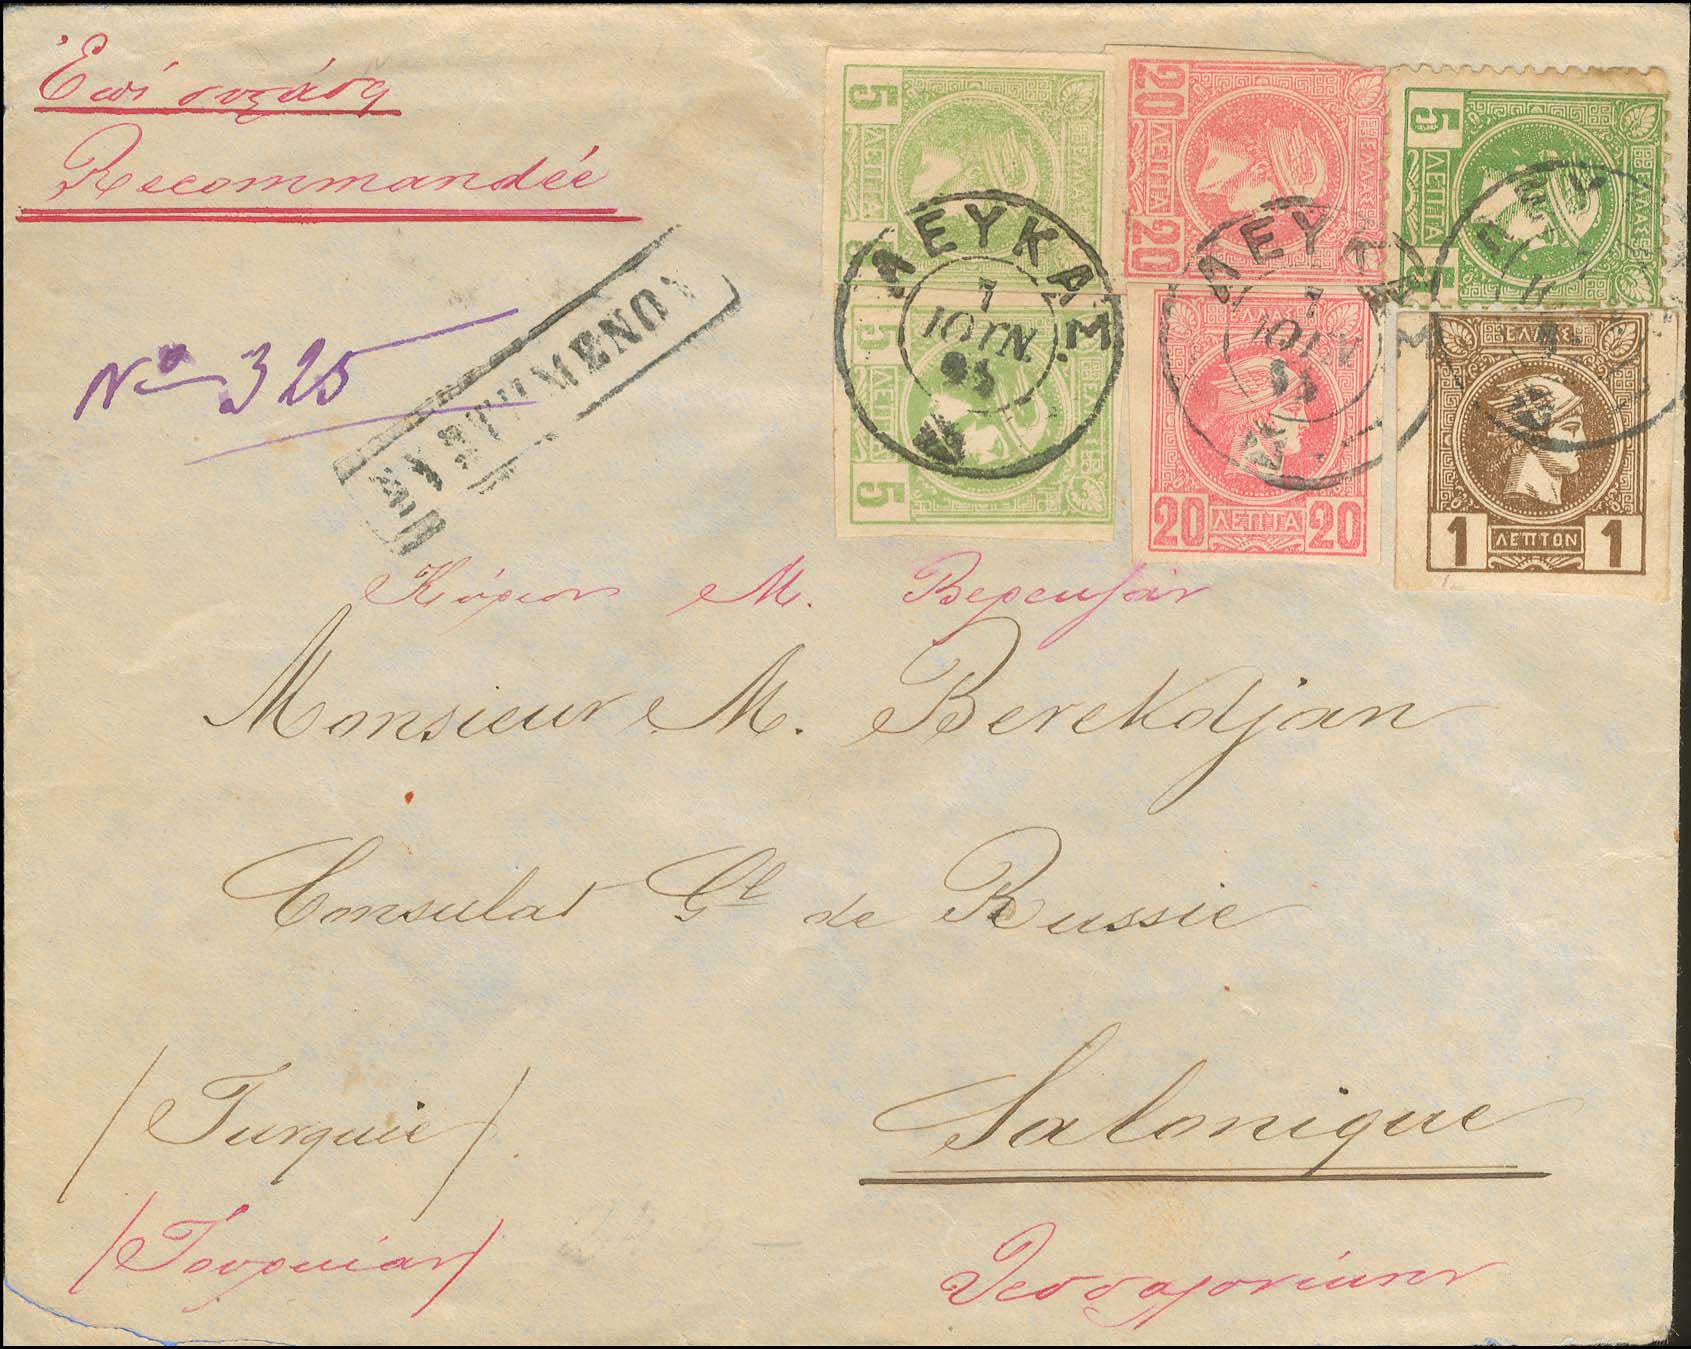 Ἐπὶ συστάσει
Recommandée
Nº 325
ΣΥΣΤΗΜΕΝΟΝ
5 ΛΕΠΤΑ 5 ΕΛΛΑΣ
20 ΛΕΠΤΑ 20 ΕΛΛΑΣ
5 ΛΕΠΤΑ 5 ΕΛΛΑΣ
5 ΛΕΠΤΑ 5
ΕΛΛΑΣ
20 ΛΕΠΤΑ 20
ΕΛΛΑΣ
1 ΛΕΠΤΟΝ 1
ΛΕΥΚΑΣ
1
ΙΟΥΝ.
95
ΛΕΥΚΑΣ
1
ΙΟΥΝ
95
Κύριον M.
Monsieur M. Berekdjan
Consulat Gl de Russie
(Turquie)
Salonique
(Τουρκίαν)
Θεσσαλονίκην